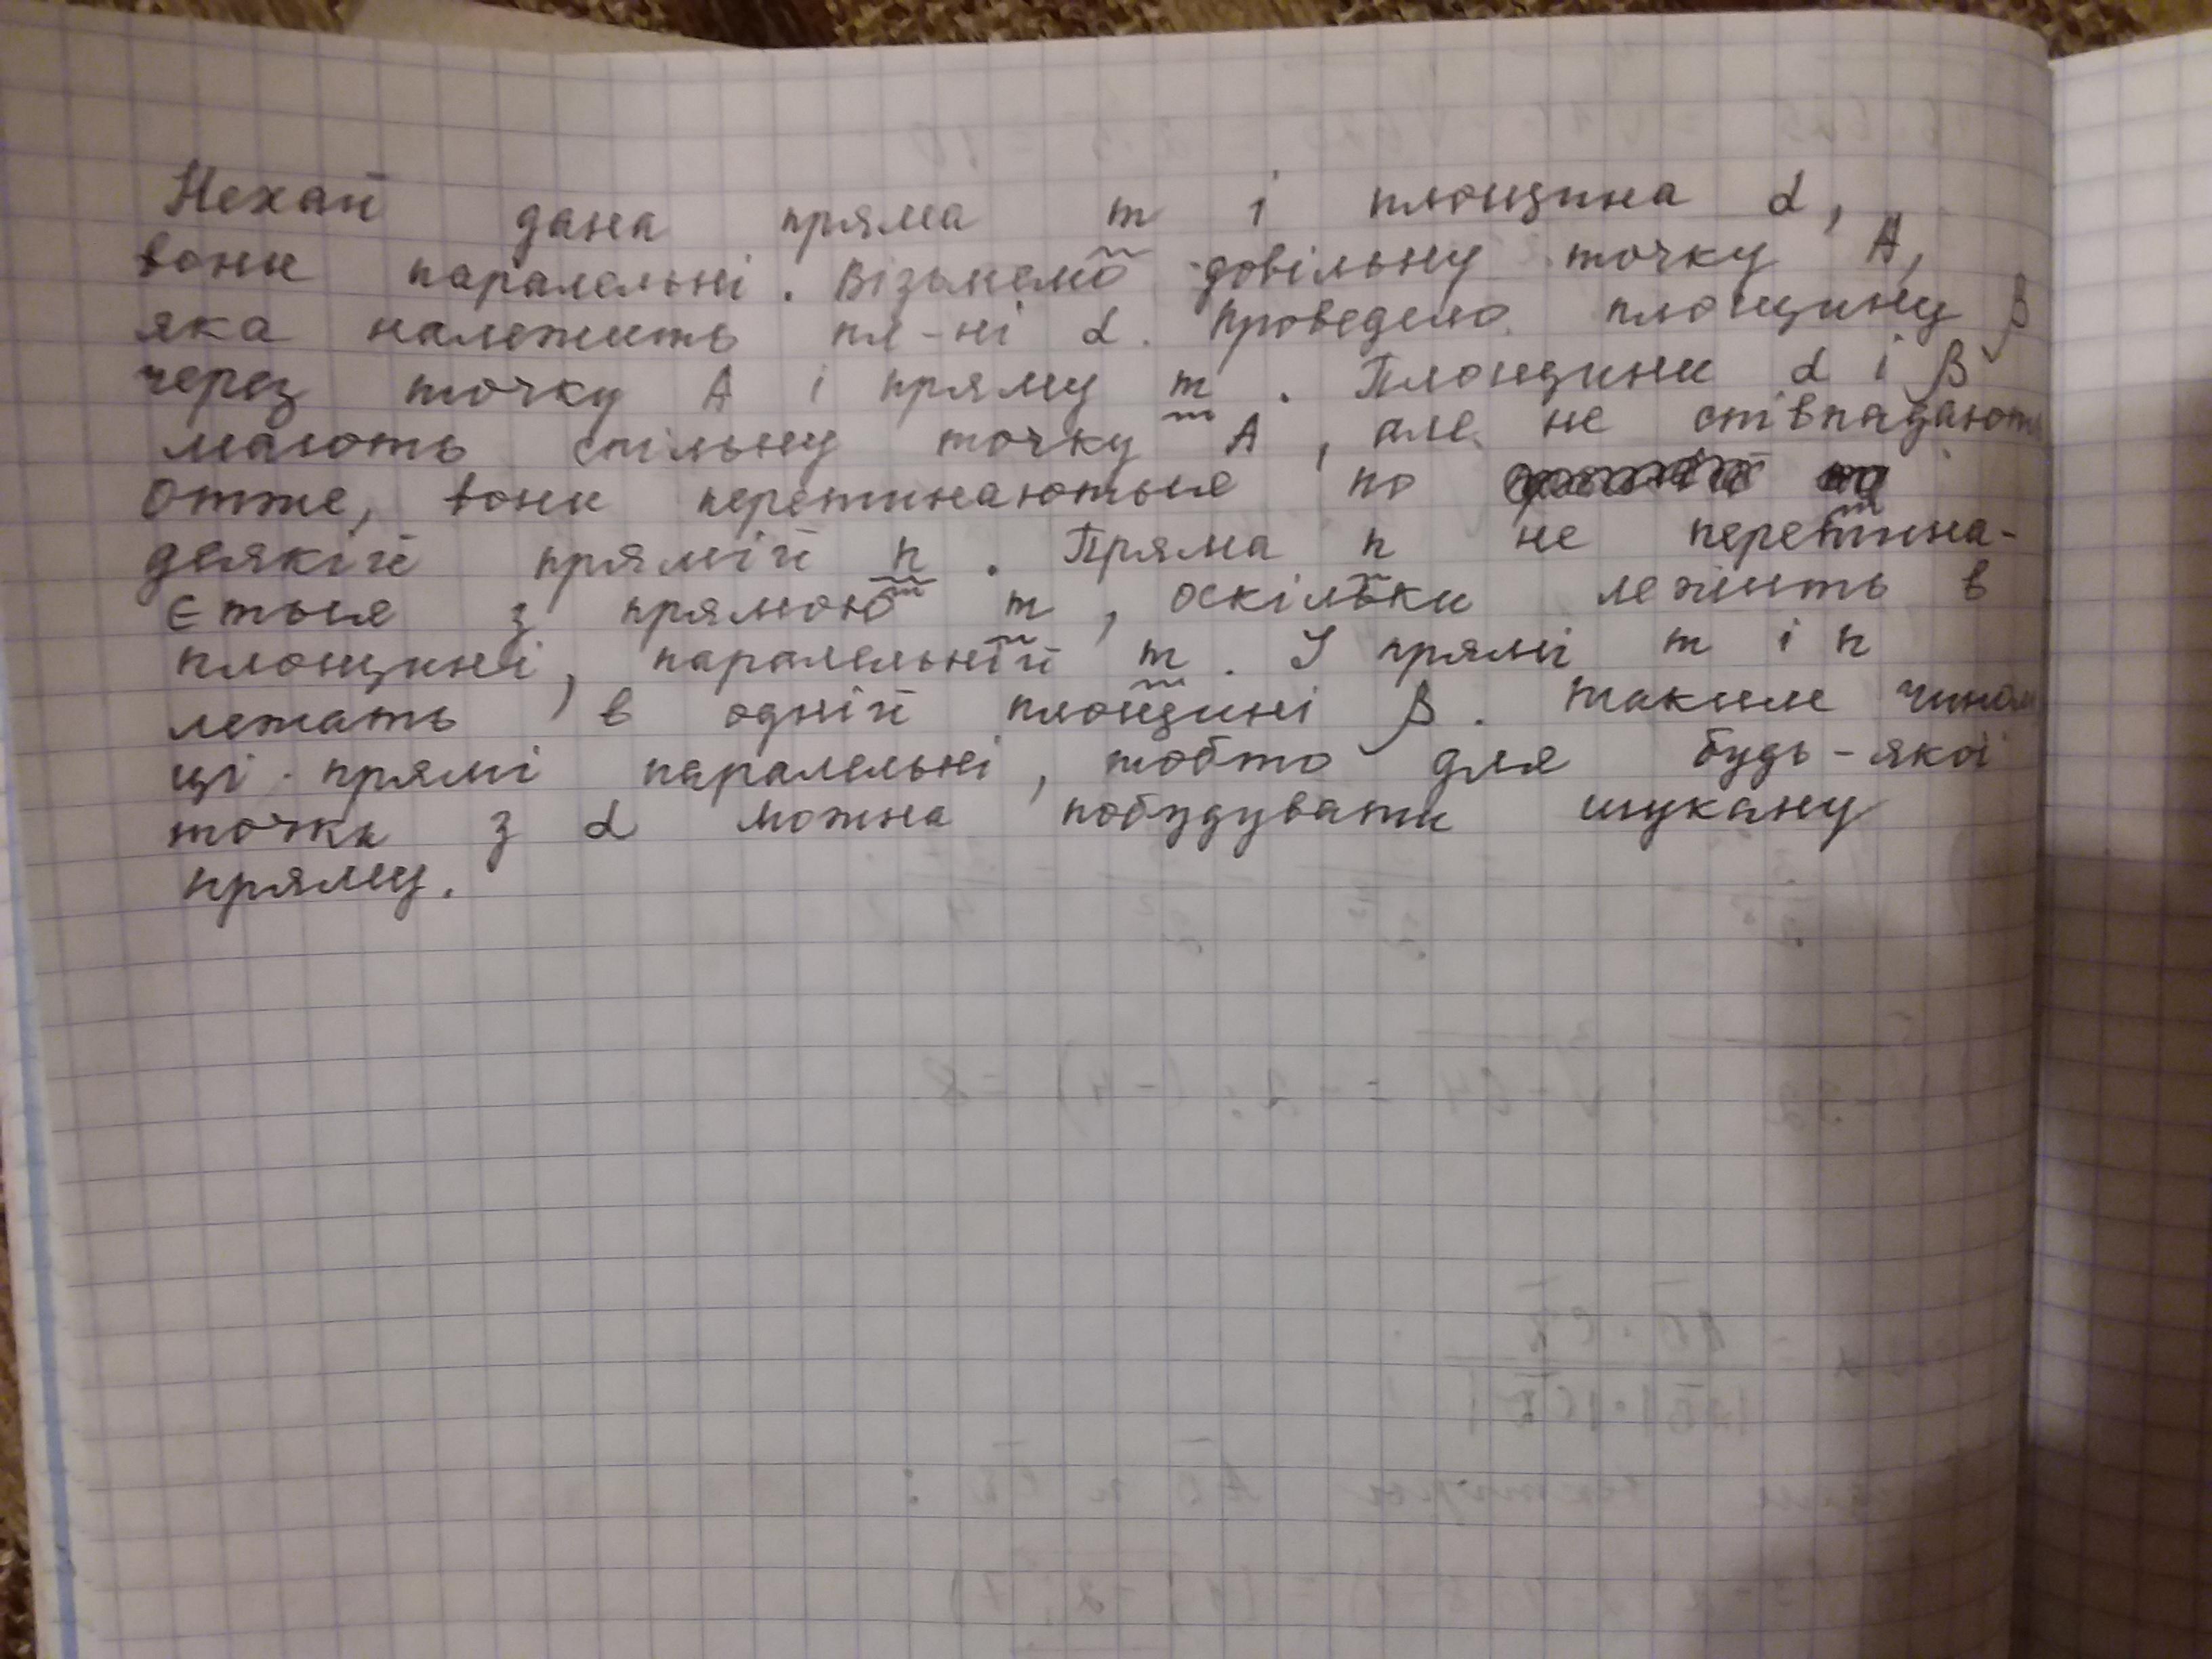 Нехай дана пряма m і площина α,
вони паралельні. Візьмемо довільну точку А,
яка належить пл-ні α. Проведемо площину β
через точку А і пряму m. Площини α і β
мають спільну точку А, але не співпадають
Отже, вони перетинаються по
деякій прямій n. Пряма n не перетина-
ється з прямою m, оскільки лежить в
площині, паралельній m. І прямі m і n
лежать в одній площині β. Таким чином
ці прямі паралельні, тобто для будь-якої
точки з α можна побудувати шукану
пряму.